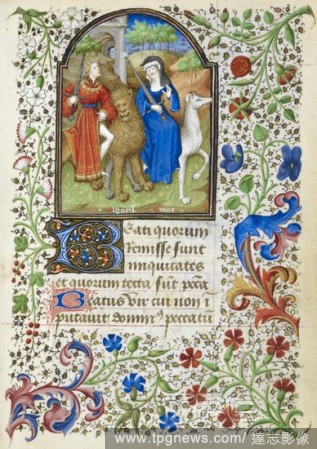 Beati quorum
remisse sunt
iniquitates
et quorum tecta sūt pecca
Beatus vir cui non i
putavit dominꝰ peccatū
www.tpgnews.com/ 達志影像